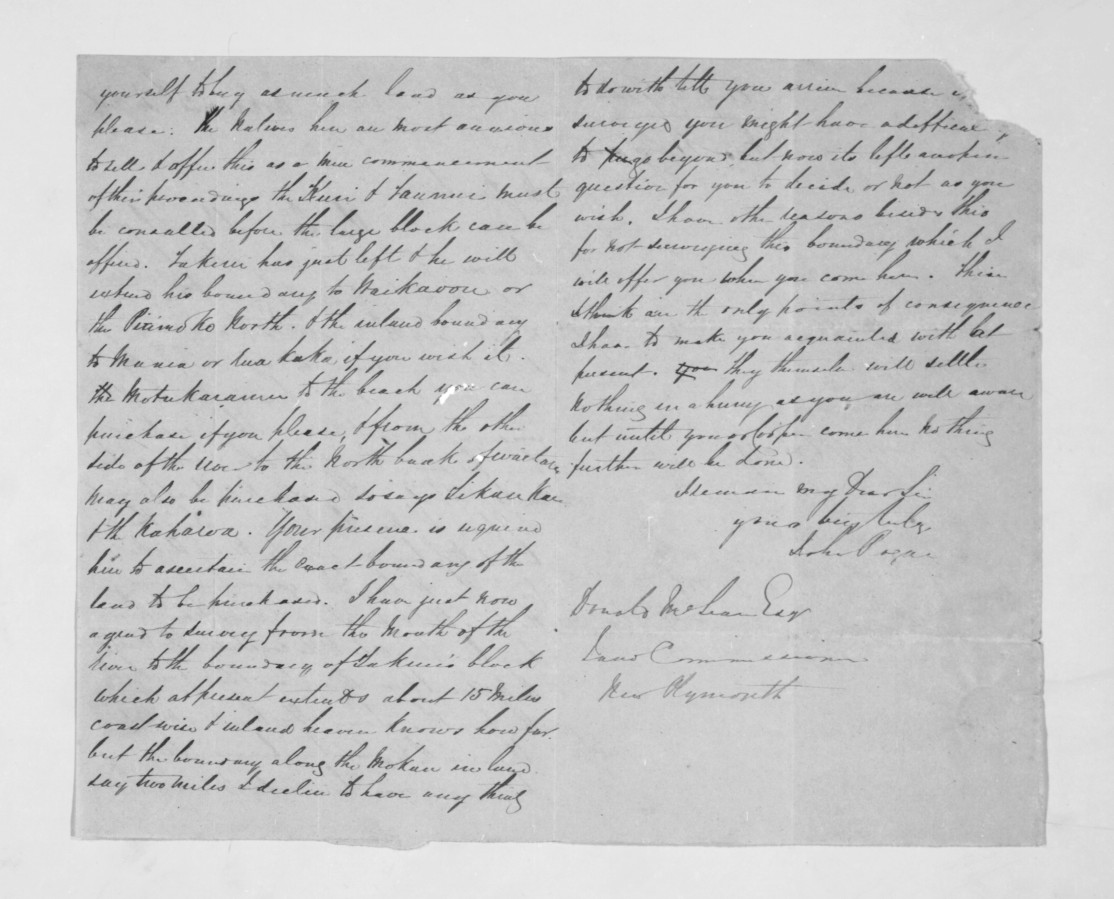 yourself to buy as much land as you
please. The Natives here are most anxious
to sell & offer this as a mere commencement
of their proceedings the & must
be consulled before the large block can be
offered. Takirei has just left & he will
extend his boundary to Waikawau or
the North. & the inland boundary
to or if you wish it.
the to the beach you can
purchase if you please, & from the other
side of the river to the North bank of
may also be purchased so says
& the . Your presence is required
here to ascertain the exact boundary of the
land to be purchased. I have just now
agreed to survey from the Mouth of the
river to the boundary of block
which at present extends about 15 Miles
coast wise & inland heaven knows how far.
but the boundary along the Mokau inland
say two miles I decline to have any thing
to do with till you arrive because
surveyed you might have a
to go beyond, but now its left an open
question for you to decide or not as you
wish. I have other reasons besides this
for not surveying this boundary which I
will offer you when you come here. These
I think are the only points of consequence
I have to make you acquainted with at
present. they themselves will settle
nothing in a hurry as you are well aware
but until you or Cooper come here nothing
further will be done.
I remain my Dear Sir
yours very truly
John
Donald McLean Esq
Land Commissioner
New Plymouth